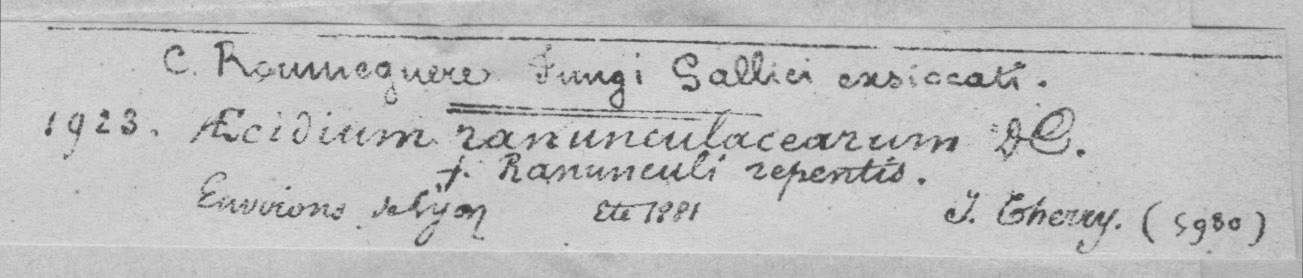 C. Roumeguere Fungi Gallici exsiccati.
1923. Æcidium ranunculacearum DC.
f. Ranunculi repentis.
Environs de Lyon Eté 1881 J. Therry. (5980)